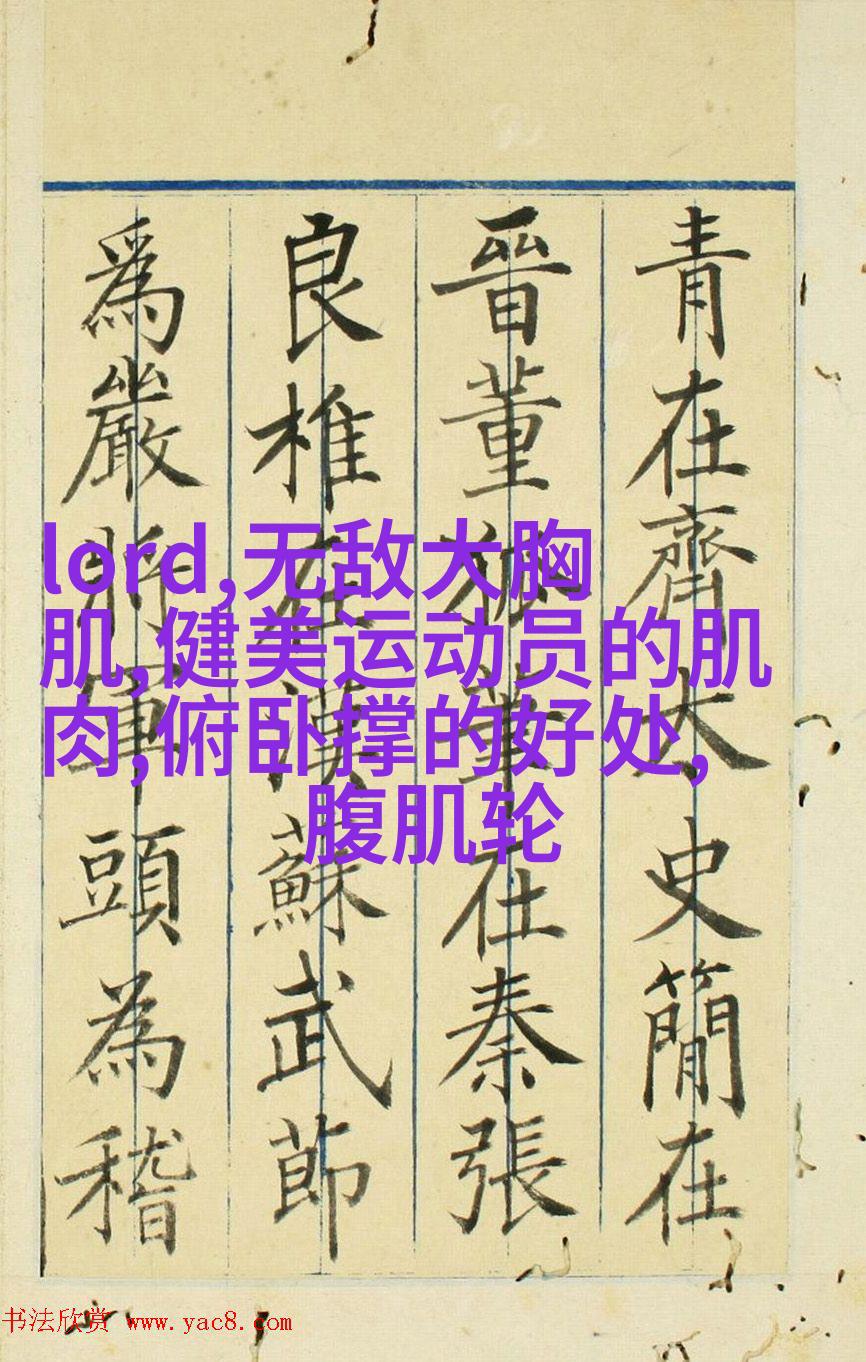 青在齊太史簡在
晉董狐筆在秦張
良椎在漢蘇武節
爲嚴將軍頭為稽
lord,无敌大胸
肌,健美运动员的肌
肉,俯卧撑的好处,
腹肌轮
书法欣赏 www.yac8.com